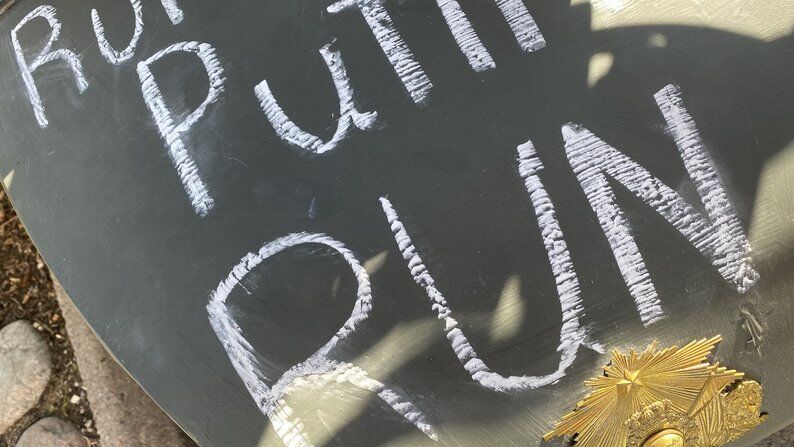 RUN
PuTIN
RUN